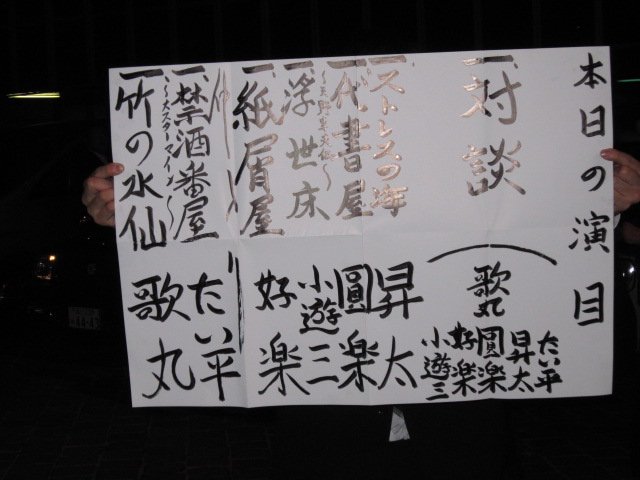 本日の演目
一、対談
歌丸
たい平
昇太
圓楽
好楽
小遊三
一、ストレスの海 昇太
一、代書屋 圓楽
一、浮世床 小遊三
一、紙屑屋 好楽
仲入り
一、禁酒番屋 たい平
～大スターマイン～
一、竹の水仙 歌丸